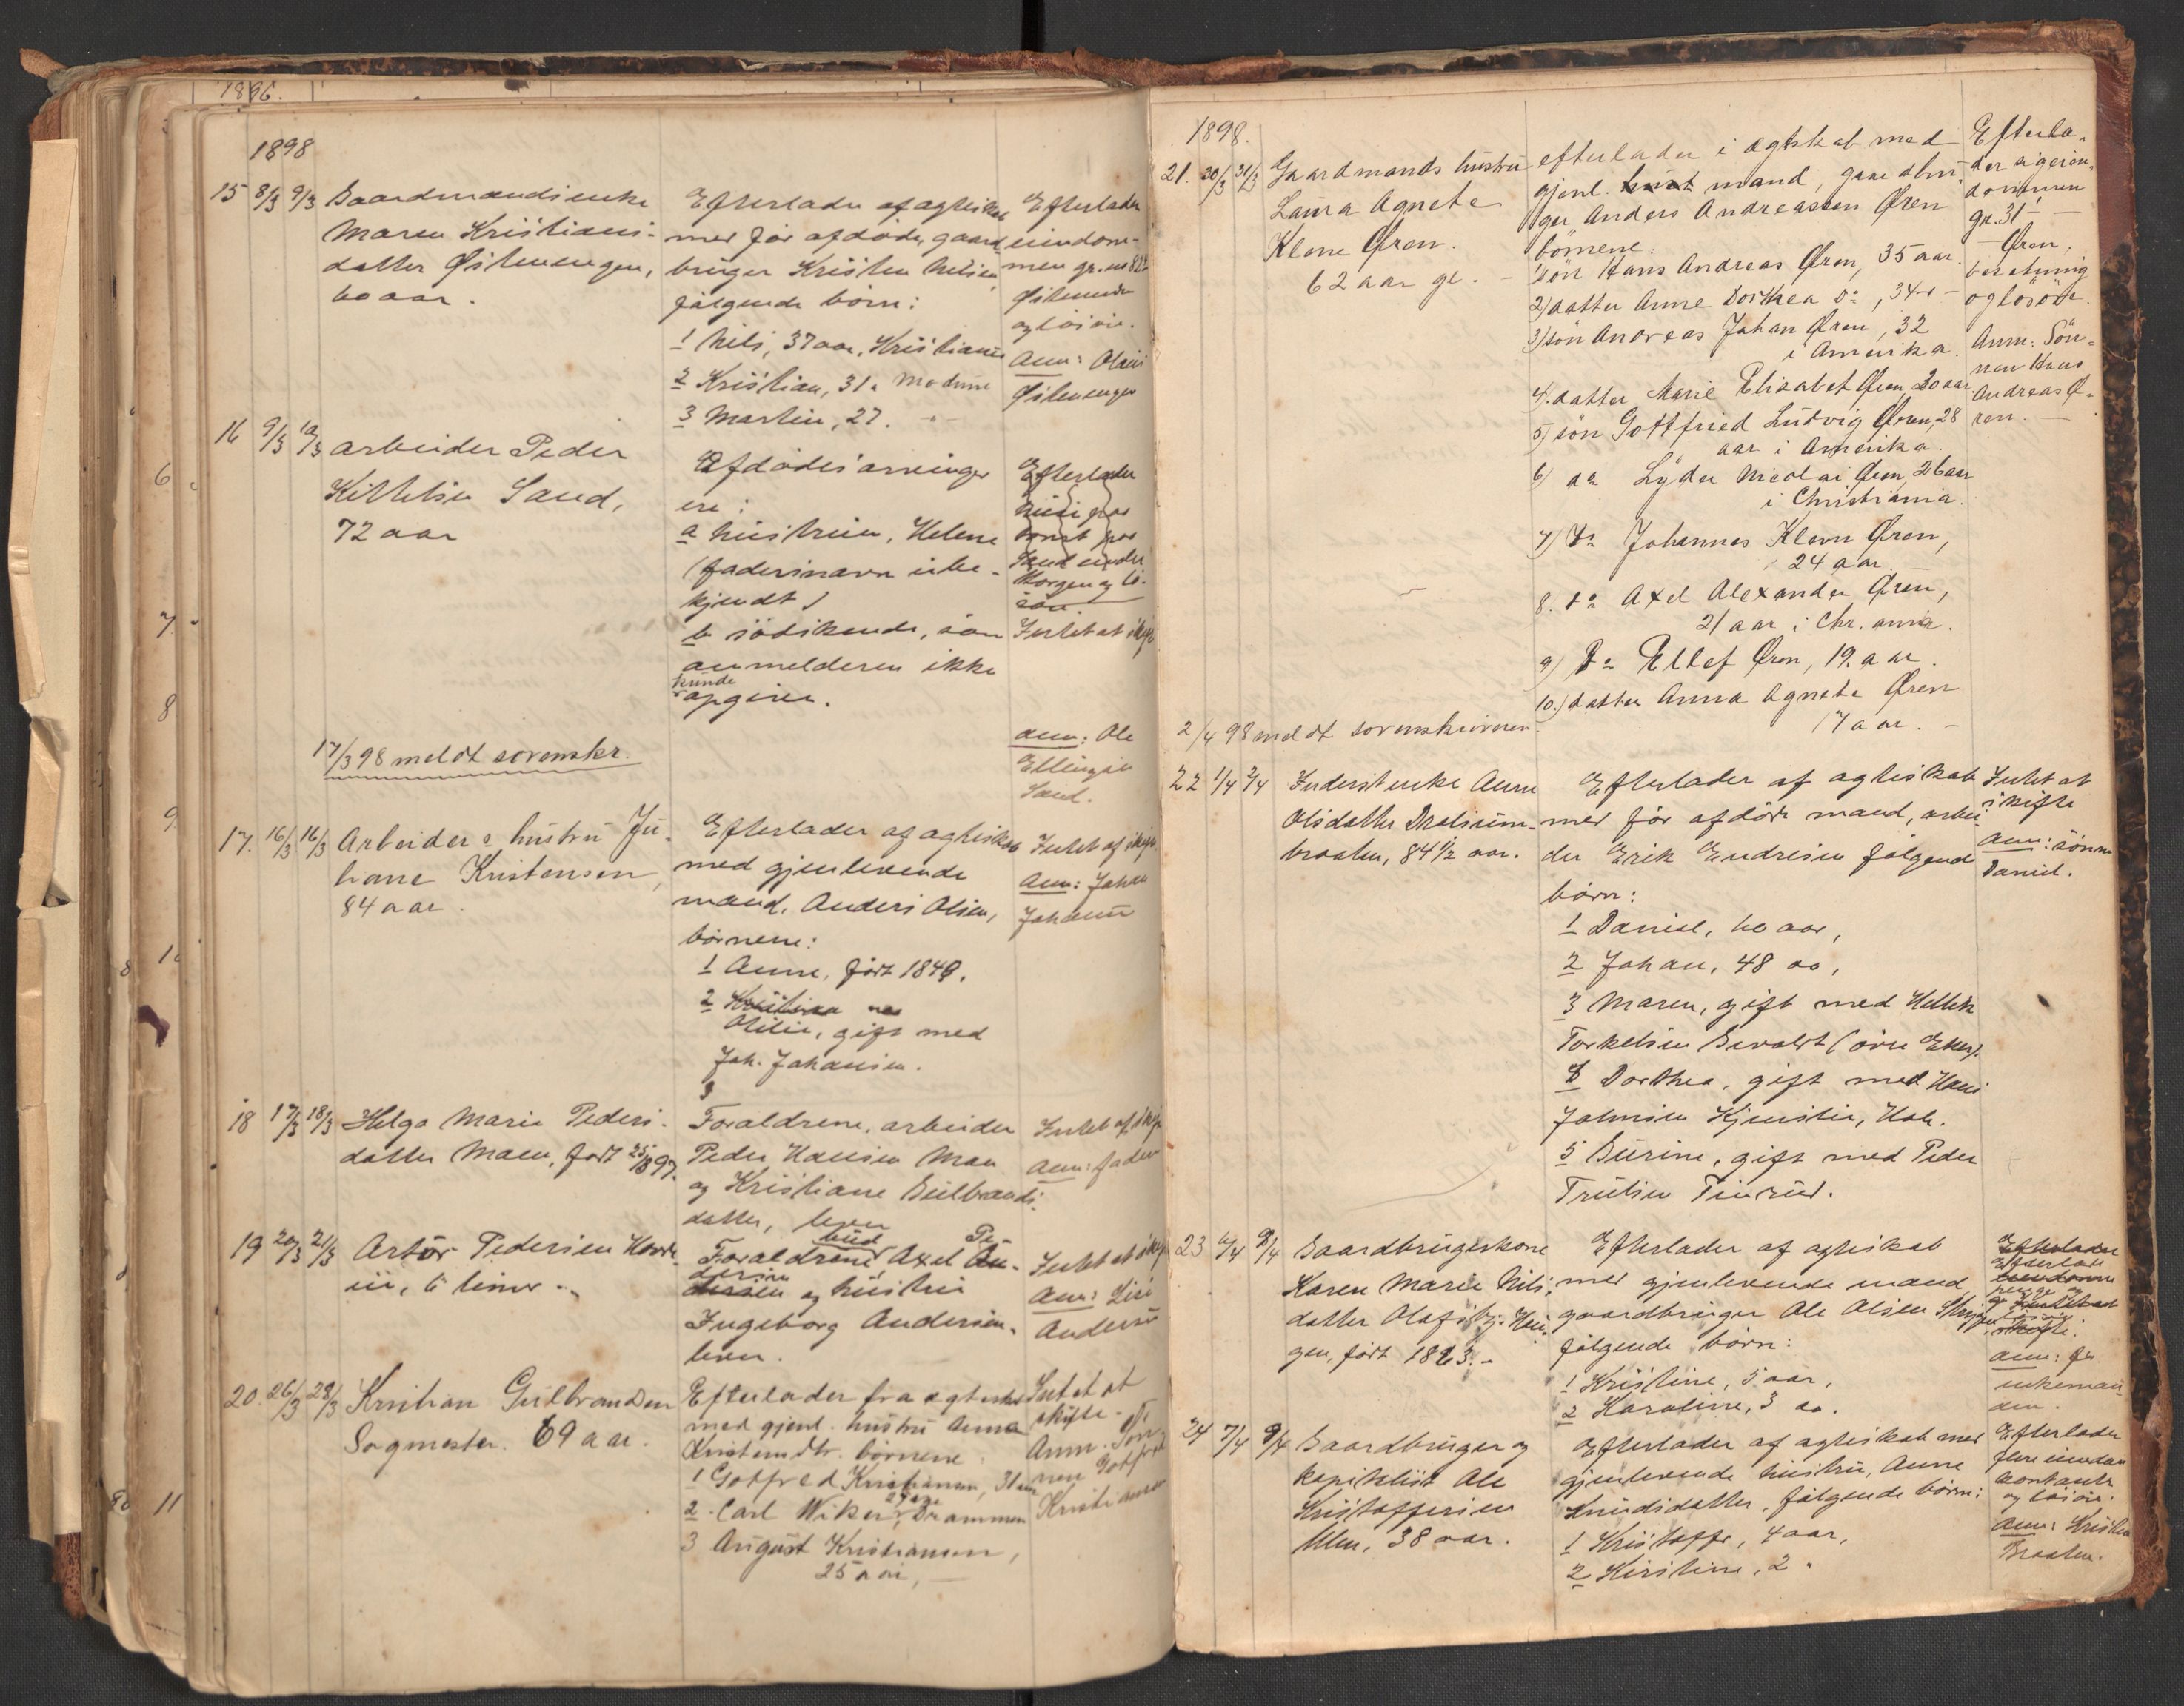 1896.
1898
15 8/3 9/3 Gaardmandsenke
Maren Kristians-
datter Østenengen,
60 aar.
Efterlader af ægteskab
med før afdøde, gaard-
bruger Kristen Nilsen
følgende børn:
1 Nils, 37 aar, Kristiania
2 Kristian, 31 " Modum
3 Martin, 27. "
Efterlader
eiendom-
men gr. no 82
og løsøre.
Anm: Olaus
Østenengen
16 9/3 10/3 Arbeider Peder
Kittelsen Sand,
72 aar
Afdødes arvinger
ere:
a hustruen, Helene
(fadersnavn ube-
kjendt)
b södskende, som
anmelderen ikke
kunde
opgiven.
Efterlader
Sand under
Horgen og lö-
söre.
Intet at skifte
Anm: Ole
Ellingsen
Sand.
17/3 98 meldt sorenskr.
17. 16/3 16/3 Arbeiders hustru Ju-
hane Kristensen,
84 aar.
Efterlader af ægteskab
med gjenlevende
mand, Anders Olsen,
børnene:
1 Anne, født 1849.
2 Kristiana
Otilie, gift med
Joh. Johansen.
3
Intet at skifte
Anm: Johan
Johansen
18 17/3 18/3 Helga Marie Peders-
datter Moen, født 25/3 97.
Foraldrene, arbeider
Peder Hansen Moen
og Kristiane Gulbrands-
datter, lever
Intet at skifte
Anm: faderen
19 20/3 21/3 Artur Pedersen
6 timer.
Foraldrene, Axel Pe-
dersen og hustru
Ingeborg Andersen,
lever.
Intet at skifte
Anm: Lise
Andersen
20. 26/3 28/3 Kristian Gulbrandsen
Sagmester. 69 aar.
Efterlader fra ægteskab
med gjenl. hustru Anna
Kristensdtr. børnene
1 Gotfred Kristiansen, 31 aar
27 aar
2. Carl Wiker, Drammen
3 August Kristiansen,
25 aar,
Intet at
skifte -
Anm. Søn-
nen Gotfred
Kristiansen
1898.
21. 30/3 31/3 Gaardmands hustru
Laura Agnete
Klem Øren.
62 aar gl. -
efterlader i ægtskab med
gjenl. hust mand, gaardbru-
ger Anders Andreassen Øren
börnene:
1 sön Hans Andreas Øren, 35 aar.
2) datter Anne Dorthea do, 34 -
3) sön Andreas Johan Øren, 32
i Amerika.
4. datter Marie Elisabet Øren, 30 aar
5) sön Gottfried Ludvig Øren, 28
aar i Amerika.
6) do Lyder Nicolai Øren, 26 aar
i Christiania.
7) do Johannes Klem Øren,
24 aar.
8. do Axel Alexander Øren,
21 aar i Chr.ania.
9) do Ellef Øren, 19. aar.
10.) datter Anna Agnete Øren
17 aar. -
Efterla-
der sig eien-
dommen
gr. 31
Øren,
besætning
og lösöre.
Anm: Sön-
nen Hans
Andreas Ø-
ren.
2/4 98 meldt sorenskriveren.
22 1/4 2/4 Inderst enke Anne
Olsdatter Dralsrum-
braaten, 84 1/2 aar.
Efterlader af ægteskab
med før afdöde mand, arbei-
der Erik Endresen følgende
børn:
1 Daniel, 60 aar,
2 Johan, 48 do,
3 Maren, gift med Hellik
Torkelsen Sevalst (øvre Eker).
4 Dorthea, gift med Hans
Johnsen Kjenslie, Hole.
5 Gurine, gift med Peder
Trulsen Finrud.
Intet at
skifte
Anm: sønnen
Daniel.
23 6/4 8/4 Gaardbrugerkone
Karen Marie Nils-
datter Olafsbj. Hau-
gen, født 1863. -
Efterlader af ægteskab
med gjenlevende mand
gaardbruger Ole Olsen
følgende børn:
1 Kristine, 5 aar,
2 Karoline, 3 do.
Efterlader
penge og
skifte.
Anm:
enkeman-
den.
24 7/4 9/4 Gaardbruger og
kapitalist Ole
Kristoffersen
Moen, 38 aar.
Efterlader af ægteskab med
gjenlevende hustru, Anne
Knudsdatter, følgende børn:
1 Kristoffer, 4 aar,
2 Kirstine, 2 "
Efterlader
flere eiendom
kontanter
og løsøre.
Anm: Kristian
Braaten.
6
7
8
9
11